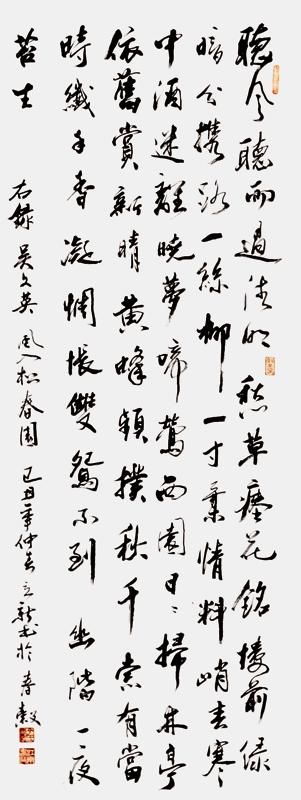 聽風聽雨過清明愁草瘞花銘樓前綠
暗分攜路一絲柳一寸柔情料峭春寒
中酒迷離曉夢啼鶯西園日日掃林亭
依舊賞新晴黃蜂頻撲秋千索有當
時纖手香凝惆悵雙鴛不到幽階一夜
苔生
右錄吳文英風入松春園己丑年仲春立新書於壽穀